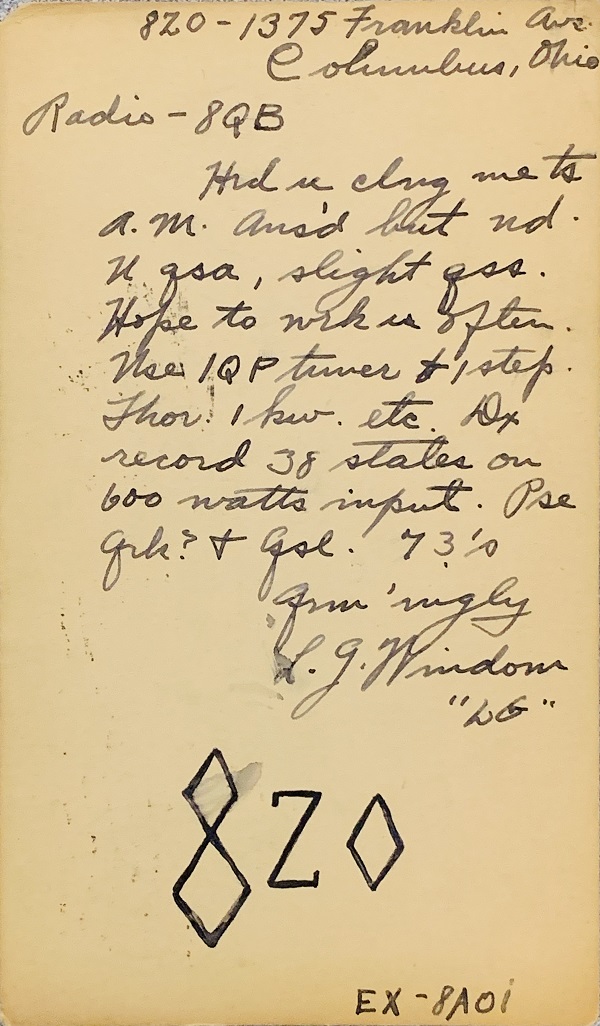 8ZO - 1375 Franklin Ave.
Columbus, Ohio
Radio - 8QB
Hrd u clng me ts
a.m. Ans'd but nd.
U qsa, slight qss.
Hope to wrk u often.
Use 1QP tuner & 1 step.
Thor. 1 kw. etc. Dx
record 38 states on
600 watts input. Pse
Qrk? & Qsl. 73's
Qrm'ingly
L. G. Windom
"LG"
8ZO
EX-8AOI